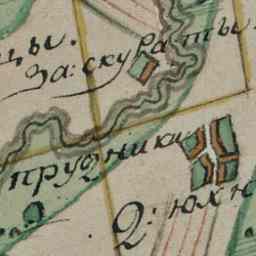 цы.
За: скураты.
прудники
2: юхн